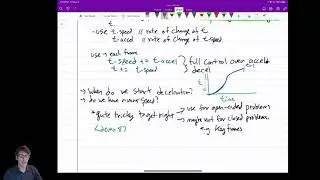 t.
- use t-speed // rate of change of t
t-accel // rate of change of t-speed
use → each frame
t-speed += t-accel } full control over accel
t += t-speed } decel
t
time
→ When do we start deceleration?
→ do we have max speed?
* quite tricky to get right → use for open-ended problems
→ maybe not for closed problems
e.g. Keyframes